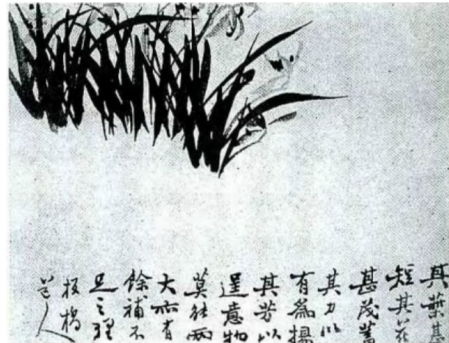 其葉甚
短其花
甚茂蓄
其力以
有爲揚
其芳以
逞意物
莫能兩
大亦有
餘補不
足之理
板橋
道人